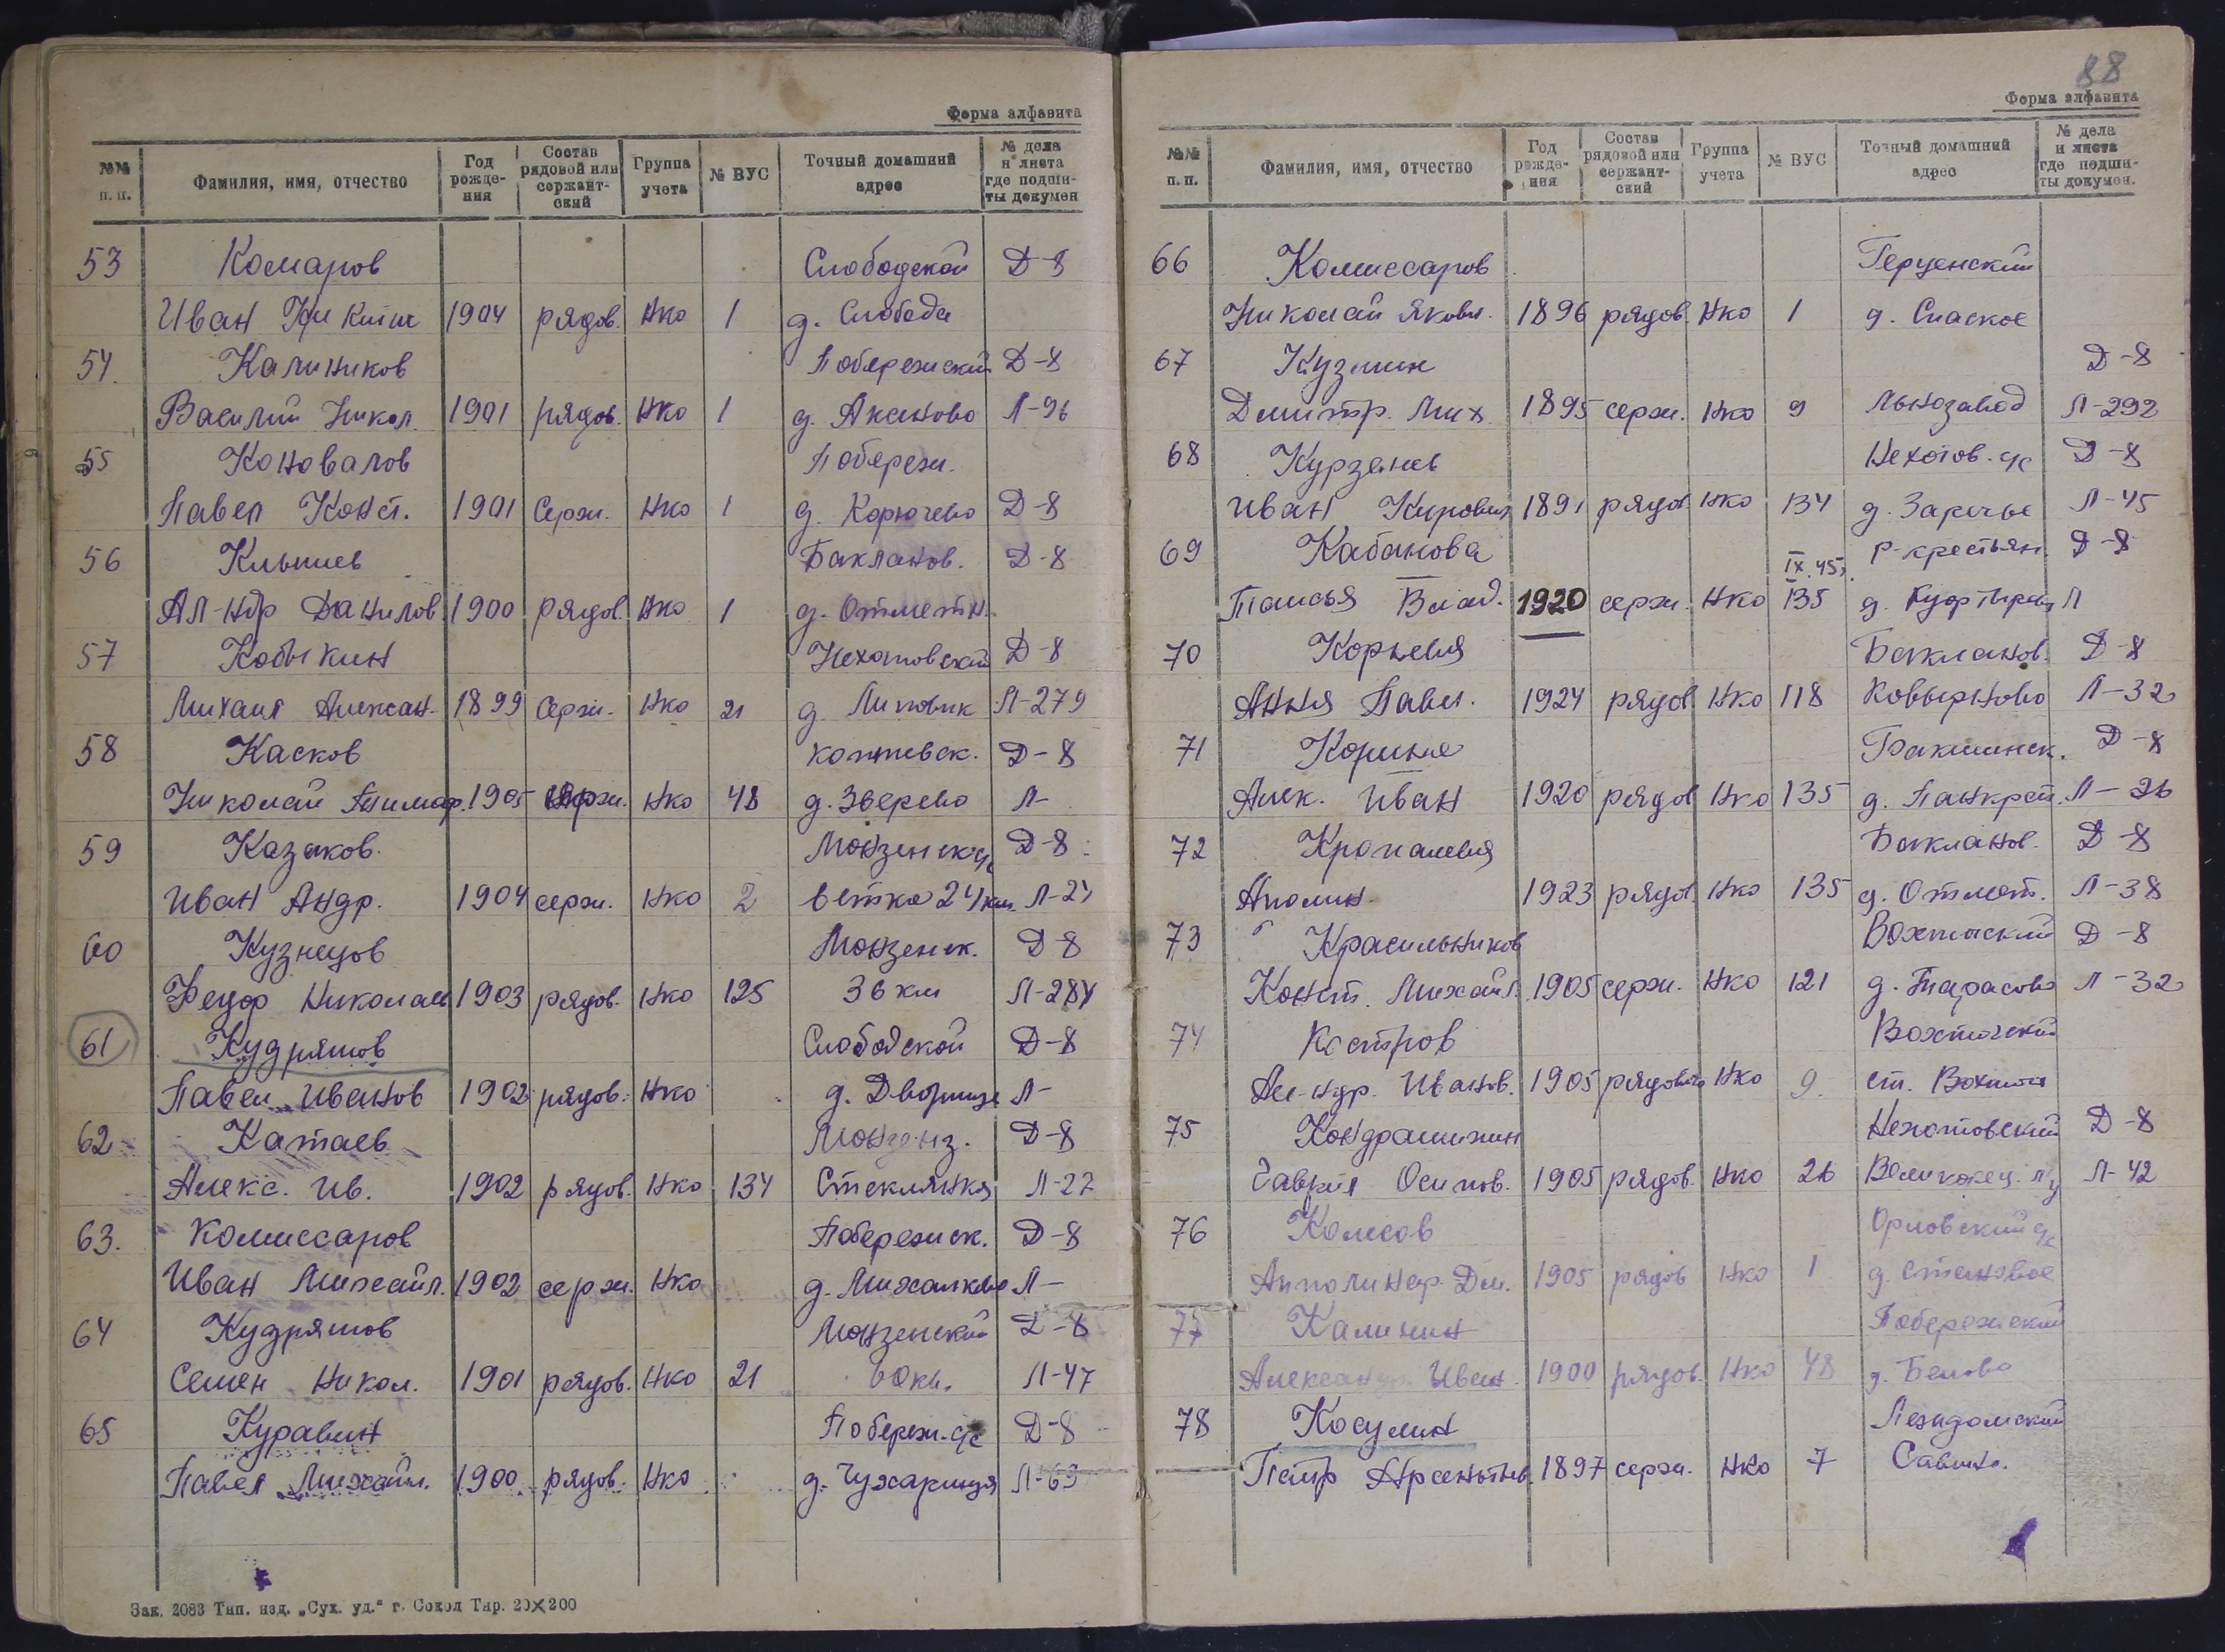 Форма алфавита
№№ п. п. Фамилия, имя, отчество Год рожде-ния Состав рядовой или сержант-ский Группа учета № ВУС Точный домашний адрес № дела и листа где подши-ты докумен
53 Комаров Слободской Д-8
Иван Никит 1904 рядов. Нко 1 д. Слобода
54. Калиников Побережский Д-8
Василий Никол. 1901 рядов. Нко 1 д. Аксеново Л-96
55 Коновалов Побереж.
Павел Конст. 1901 Серж. Нко 1 д. Корючево Д-8
56 Клышев Бакланов. Д-8
Ал-ндр Данилов 1900 рядов. Нко 1 д. Отметн.
57 Кобыкин Нехотовский Д-8
Михаил Алексан. 1899 Серж. Нко 21 д. Липовик Л-279
58 Касков коптевск. Д-8
Николай 1905 серж. Нко 48 д. Зверево Л-
59 Казаков. Монзенск с/с Д-8
Иван Андр. 1904 серж. Нко 2 ветка 24 км Л-24
60 Кузнецов Монзенск. Д-8
Федор Николаев 1903 рядов. Нко 125 36 км Л-284
61 Кудряшов Слободской Д-8
Павел Иванов 1902 рядов. Нко д. Дворище Л-
62 Катаев Д-8
Алекс. Ив. 1902 рядов. Нко 134 Стеклянка Л-22
63. Комиссаров Побережск. Д-8
Иван Михайл. 1902 серж. Нко д. Михалково Л-
64 Кудряшов Монзенский Д-8
Семен Никол. 1901 рядов. Нко 21 Л-47
65 Куравин Побереж. с/с Д-8
Павел Михайл. 1900 рядов. Нко д. Чухарица Л-69
Зак. 2083 Тип. изд. „Сух. уд.“ г. Сокол Тир. 20×200
88
Форма алфавита
№№ п. п. Фамилия, имя, отчество Год рожде-ния Состав рядовой или сержант-ский Группа учета № ВУС Точный домашний адрес № дела и листа где подши-ты докумен.
66 Комиссаров Герценский
Николай Яковл. 1896 рядов. Нко 1 д. Спаское
67 Кузмин Д-8
Дмитр. Мих. 1895 серж. Нко 9 Льнозавод Л-292
68 Курзенев Нехотов. с/с Д-8
Иван Кирович 1891 рядов Нко 134 д. Заречье Л-45
69 Кабанова IX.45г. Р-крестьян. Д-8
Таисья Влад. 1920 серж. Нко 135 д. Л
70 Корнева Бакланов. Д-8
Анна Павл. 1924 рядов Нко 118 Ковырново Л-32
71 Корина Бакшинск. Д-8
Алек. Иван 1920 рядов Нко 135 д. Панкрат. Л-26
72 Кропалева Бакланов. Д-8
Аполин. 1923 рядов Нко 135 д. Отмет. Л-38
73 Красильников Вохтожский Д-8
Конст. Михайл. 1905 серж. Нко 121 д. Тарасово Л-32
74 Костров Вохтожский
Ал-ндр. Иванов. 1905 рядового Нко 9. ст. Вохтога
75 Кондрашихин Нехотовский Д-8
Гаврил Осипов. 1905 рядов. Нко 26 Л-42
76 Колесов Орловский с/с
Апполинар Дм. 1905 рядов Нко 1 д. Становое
77 Калинин Побережский
Александр. Иван. 1900 рядов. Нко 48 д. Белово
78 Косулин Лежидомский
Петр Арсентьев. 1897 серж. Нко 7 Савино.